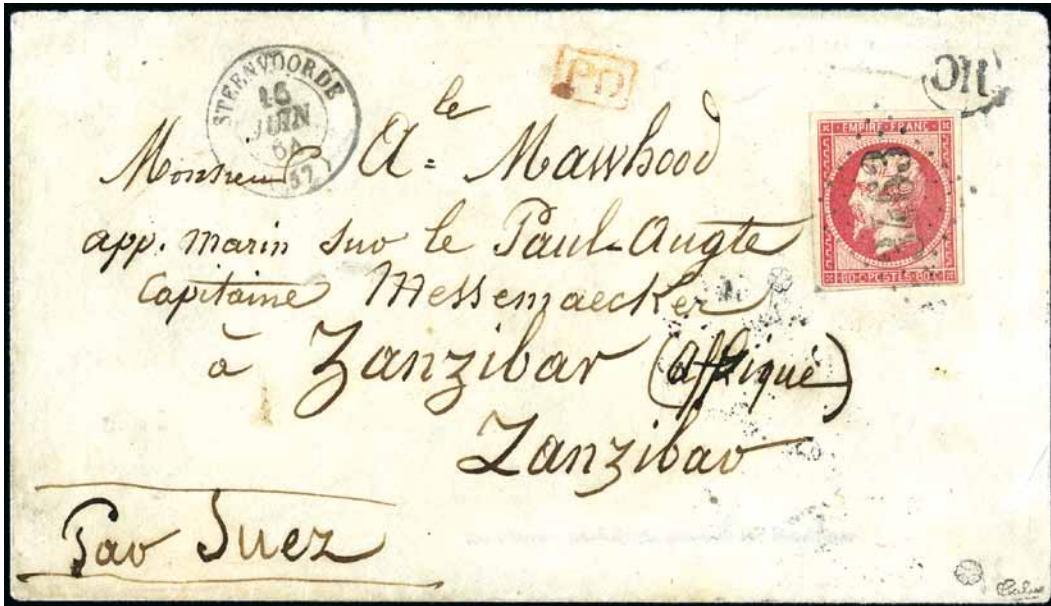 STEENVOORDE
16
JUIN
64
(57)
PD
OR
EMPIRE FRANC
80 C POSTES 80 C
le
Monsieur A= Mawhood
app. marin sur le Paul-Augte
Capitaine Messemaecker
à Zanzibar (Affrique)
Zanzibar
Par Suez